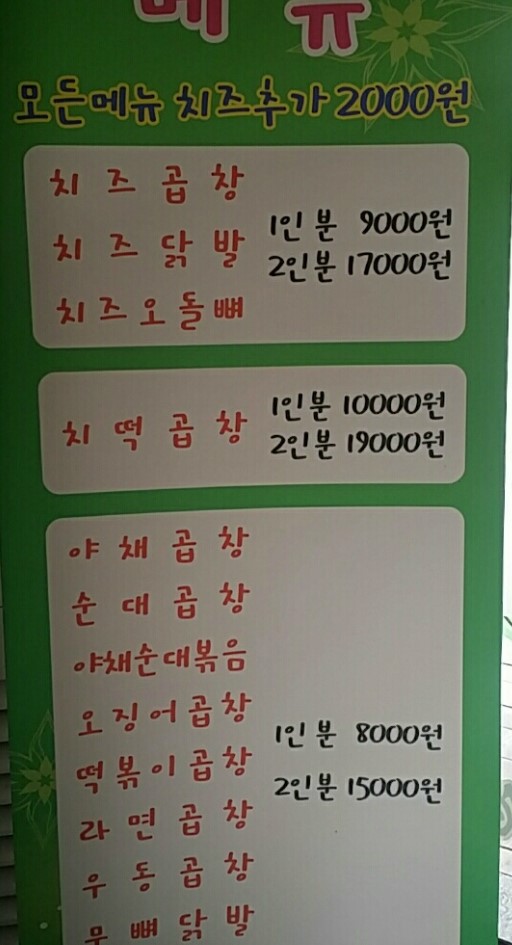 메뉴
모든메뉴 치즈추가 2000원
치즈곱창
치즈닭발
치즈오돌뼈
1인분 9000원
2인분 17000원
치떡곱창
1인분 10000원
2인분 19000원
야채곱창
순대곱창
야채순대볶음
오징어곱창
떡볶이곱창
라면곱창
우동곱창
무뼈닭발
1인분 8000원
2인분 15000원